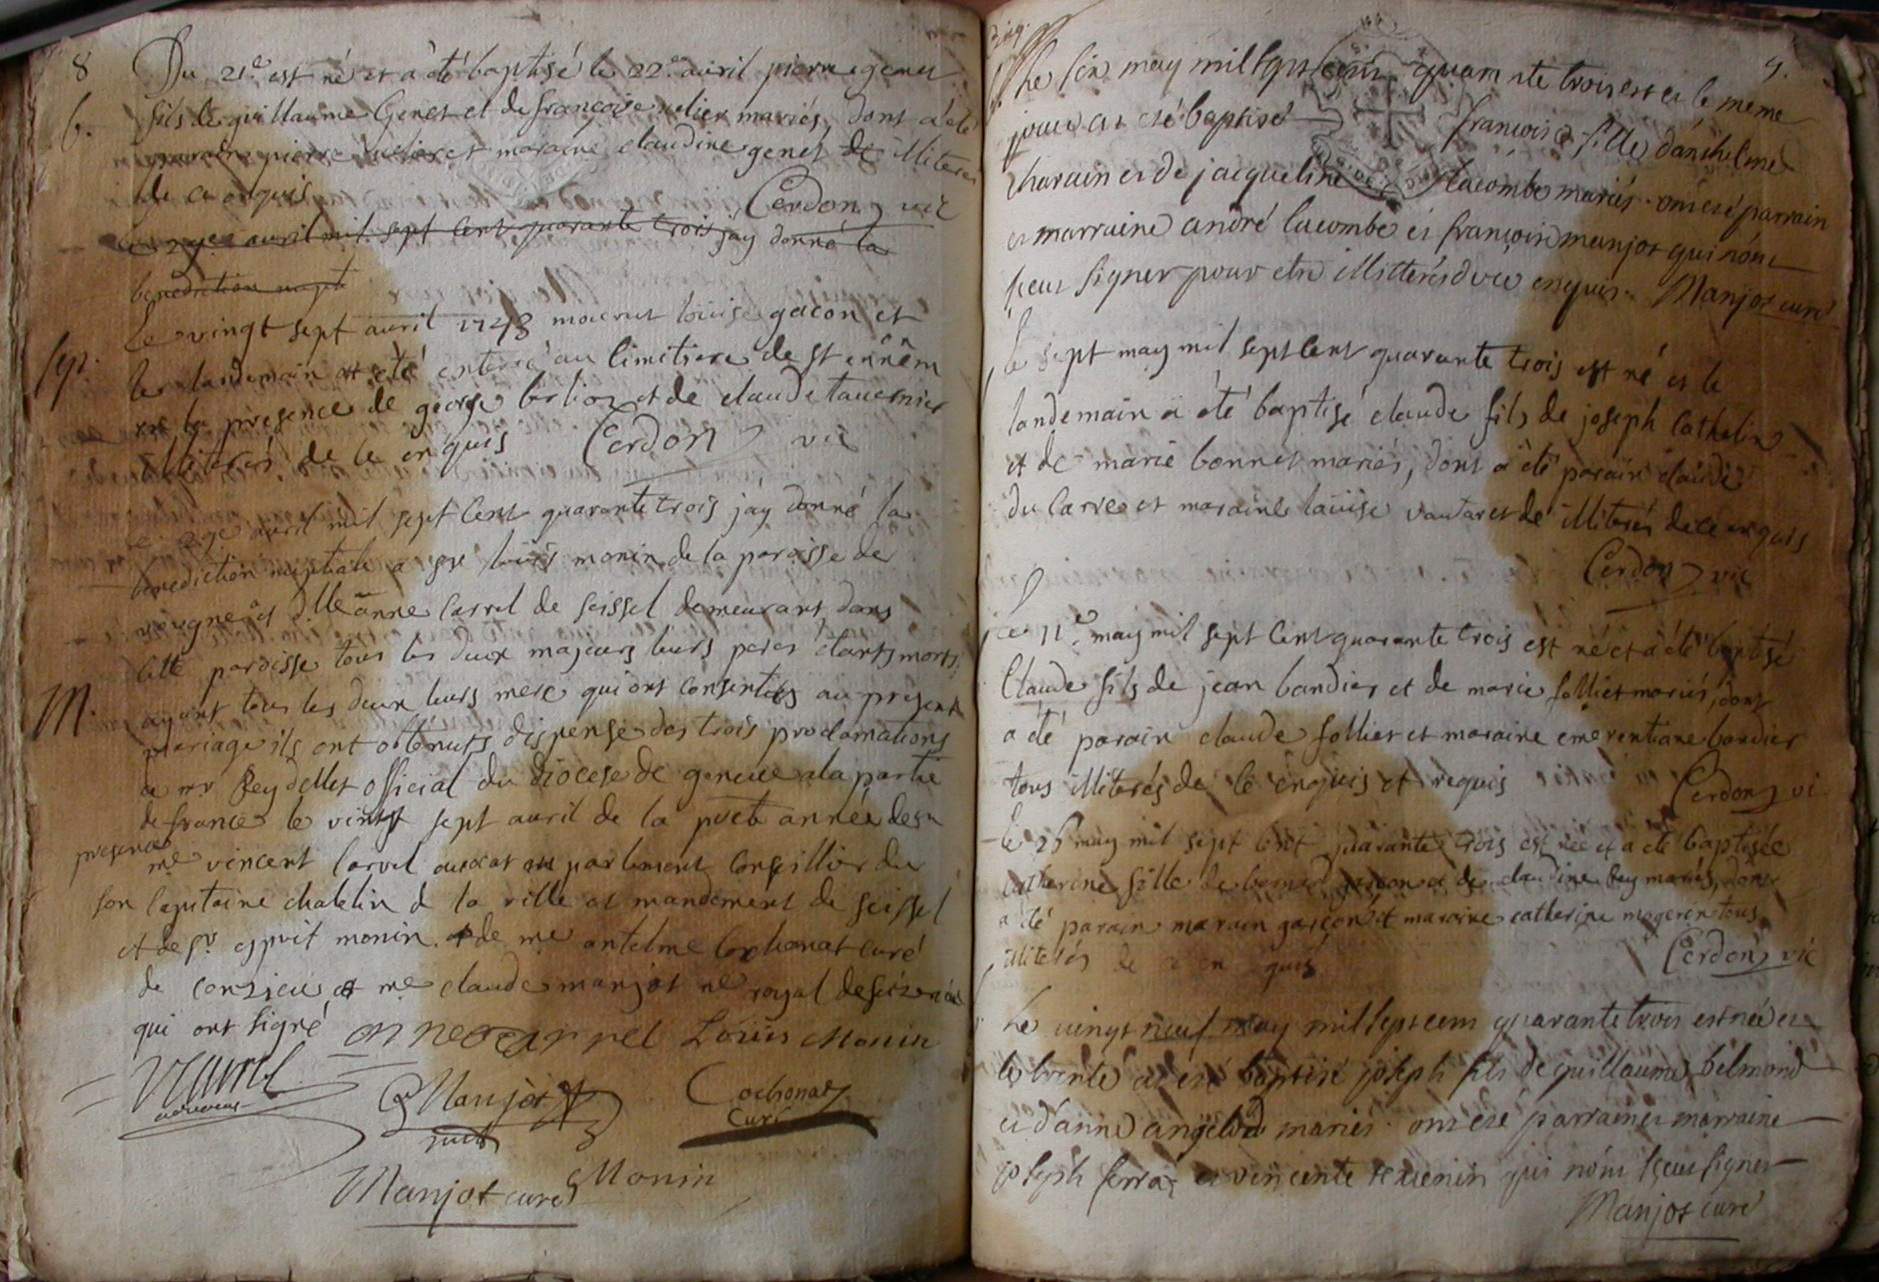 8
Du 21e est né et à été baptisé le 22e auril pierre genet
b.
fils de guillaume Genet et de françoise uelier mariés, dont à été
parain pierre uelier et maraine claudine genet de illiteres
de ce enquis Cerdon vic
le 29e auril mil sept cent quarante trois jay donné la
benediction nupt
Le vingt sept auril 1743 mourut louise gacon et
sep.
le landemain et été enterré au cimitiere de st
en la presence de george berlioz et de claude tauernier
illiterés de ce enquis Cerdon vic
le 29e auril mil sept cent quarante trois jáy donné la
benediction nuptiale a sre louis monin de la paroisse de
vougne et dlle anne carrel de seissel demeurant dans
cette paroisse tous les deux majeurs leurs peres etants morts
M.
ayant tous les deux leurs mere qui ont consenties au present
mariage ils ont obtenuts dispense des trois proclamations
de mr Reydellet official du diocese de geneue a la partie
de france le vingt sept auril de la pnte année des
presence
me vincent carrel auocat au parlement conseillier du
son capitaine chatelin d la ville et mandement de seissel
et de sr esprit monin et de me antelme cochonat curé
de conzieu et me claude manjot ne royal de
qui ont signé anne carrel Loüis Monin
VCarrel
Manjot Cochonat
curé
Manjot curé Monin
9.
Le six may mil sept cent quarante trois est né le meme
jour et a été baptisé françoise fille d'anthelme
charuain et de jacqueline lacombe mariés. ont eté parrain
et marraine andré lacombe et françoise manjot qui nont
sceu signer pour etre illitterés de ce enquis. Manjot curé
Le sept may mil sept cent quarante trois est né et le
landemain à été baptisé claude fils de joseph Cathelin
et de marie bonnet mariés, dont à été parain claude
du carre et maraine louise vautaret de illiterés de ce enquis
Cerdon vic
Le 11e may mil sept cent quarante trois est né et à été baptisé
Claude fils de jean bandier et de marie follier mariés, dont
a été parain claude follier et maraine emerentiane bandier
tous illiterés de ce enquis et requis Cerdon vi
le 26 may mil sept cent quarante trois est née et a été baptisée
catherine fille de bernard gascon et de claudine Rey mariés, dont
a été parain marain gascon et maraine catherine mogenin tous
illiterés de ce en quis Cerdon vic
Le vingt neuf may mil sept cent quarante trois est né et
le trente at été baptisé joseph fils de guillaume belmond
et d'anne angelod mariés. ont eté parrain et marraine
joseph ferra et vincente temenin qui nont sceu signer
Manjot curé